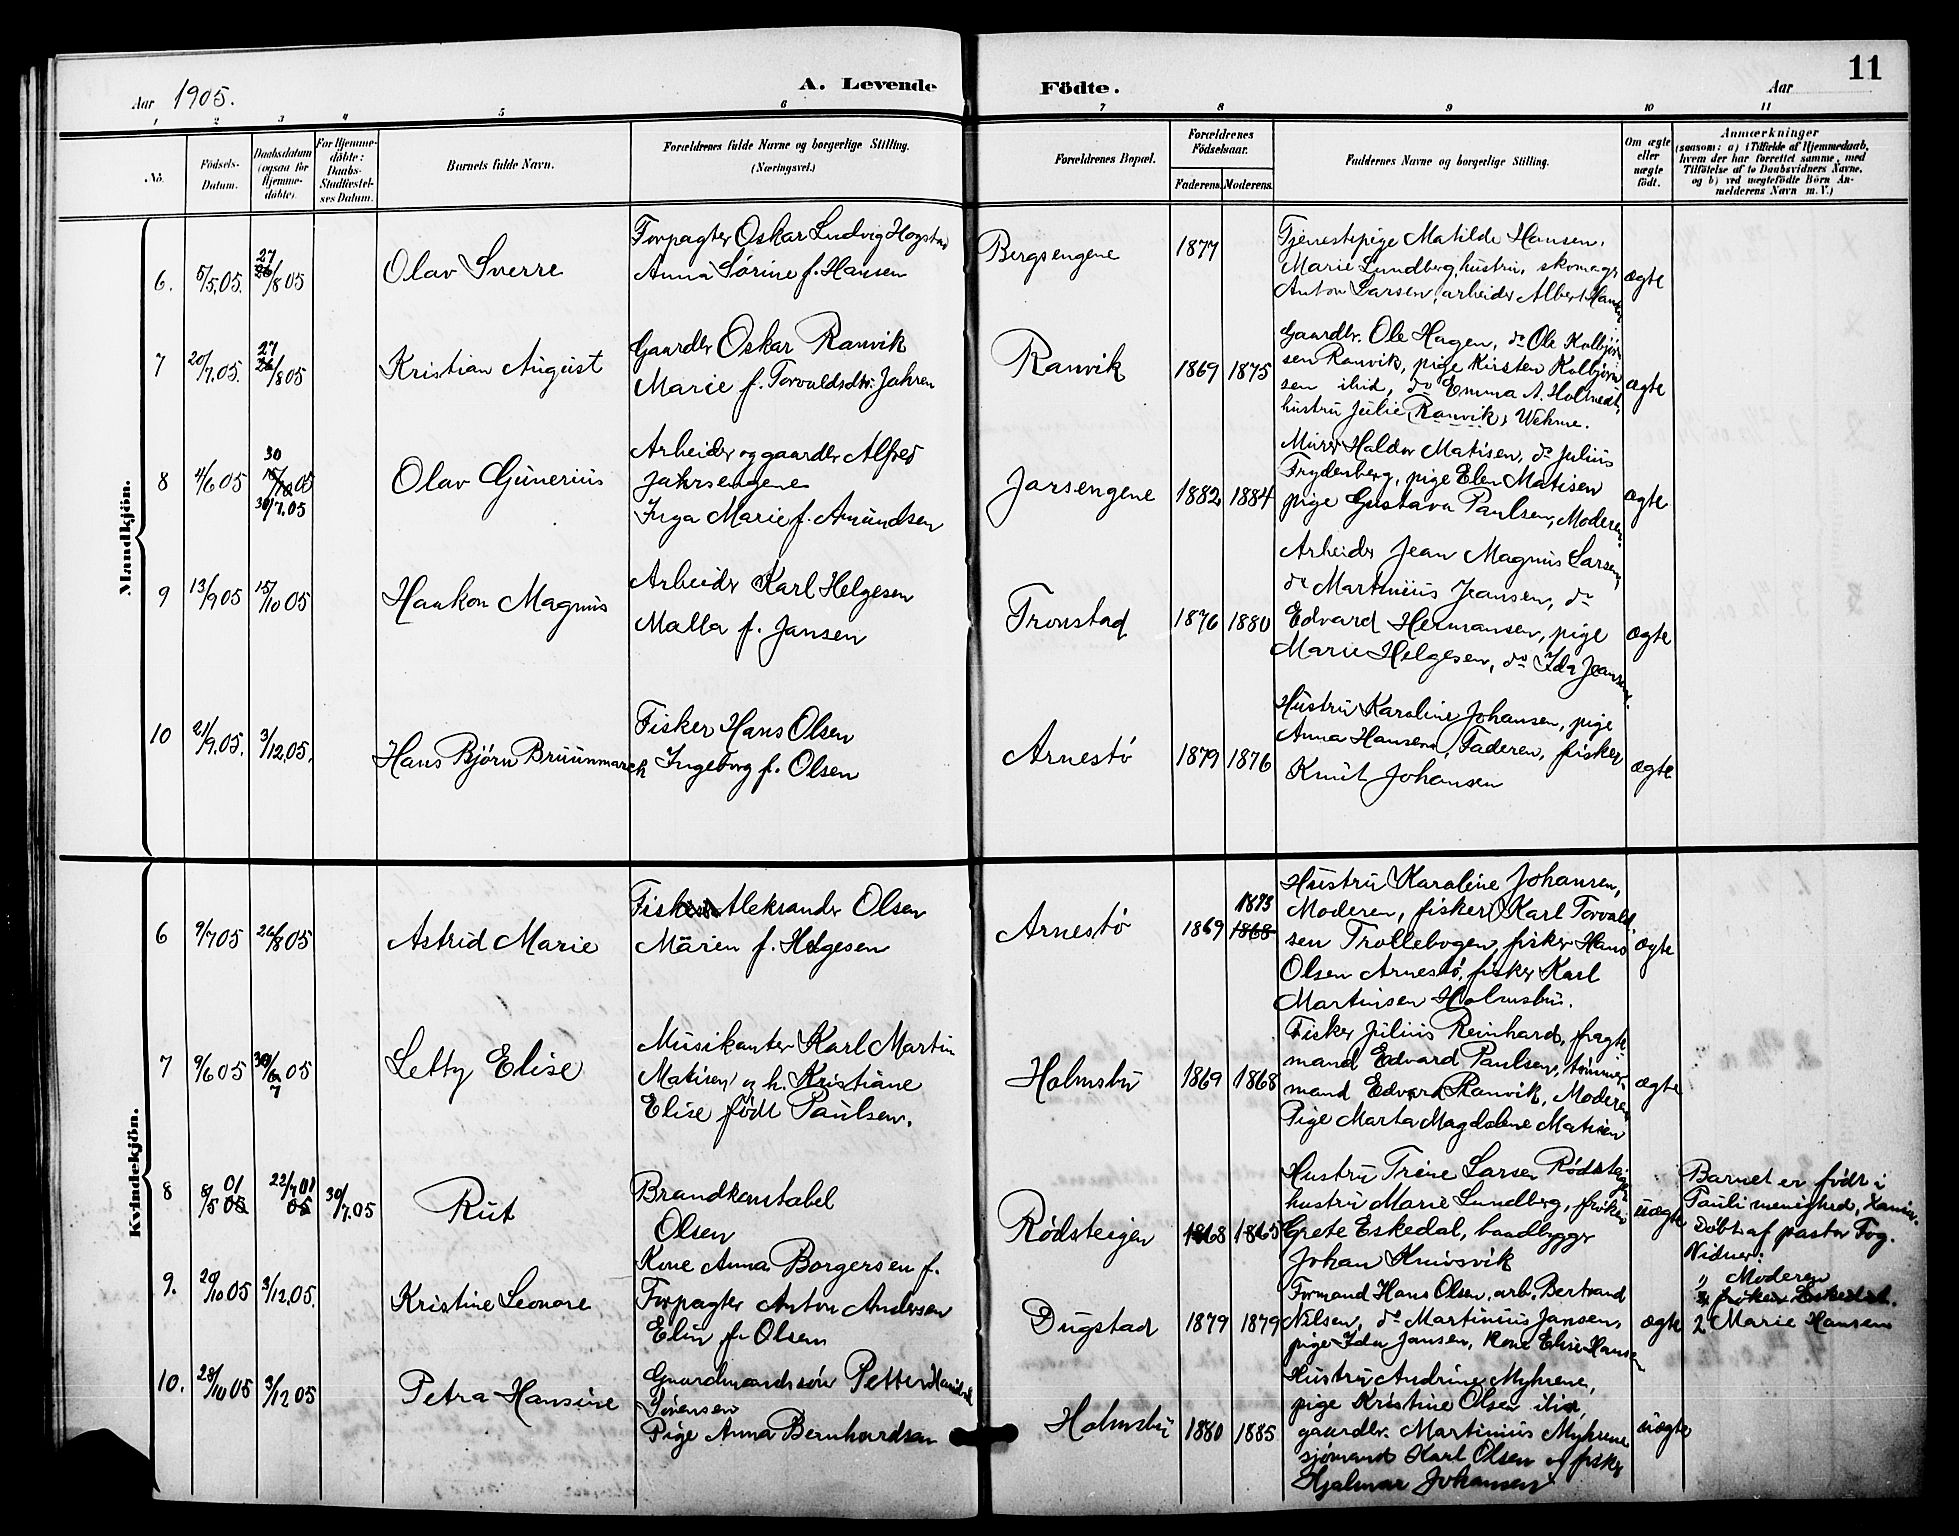 11
Aar 1905.
A. Levende Födte.
Aar
1 2 3 4 5 6 7 8 9 10 11
No.
Födsels-Datum.
Daabsdatum (ogsaa for Hjemme-döbte).
For Hjemme-döbte: Daabs-Stadfæstel-ses Datum.
Barnets fulde Navn.
Forældrenes fulde Navne og borgerlige Stilling. (Næringsvei.)
Forældrenes Bopæl.
Forældrenes Födselsaar.
Faderens. Moderens.
Faddernes Navne og borgerlige Stilling.
Om ægte eller uægte födt.
Anmærkninger
(saasom: a) i Tilfælde af Hjemmedaab,
hvem der har forrettet samme, med
Tilföielse af to Daabsvidners Navne,
og b) ved uægtefödte Börn An-
melderens Navn m. V.)
Mandkjön.
6. 5/5.05. 27 26/8 05
Olav Sverre
Forpagter Oskar Ludvig Hogstad
Anna Sørine f. Hansen
Bergsengene
1877
Tjenestepige Matilde Hansen,
Marie Lundberg, hustru, skomagr
Anton Larsen, arbeider Albert Hansen
ægte
7 20/7.05. 27 26/8 05
Kristian August
Gaardbr Oskar Ranvik
Marie f. Torvaldsdtr. Jahren
Ranvik
1869 1875
Gaardbr. Ole Hagen, do Ole Kolbjørn
sen Ranvik, pige Kirsten Kolbjørn
sen ibid, do Emma A. Holtnedt,
hustru Julie Ranvik, Wehme.
ægte
8 4/6 05 30 15/10 05 30/7.05
Olav Gunerius
Arbeider og gaardbr Alfred
Jahrsengene
Inga Marie f. Amundsen
Jarsengene
1882 1884
Murer Haldor Matisen, do Julius
Frydenberg, pige Elen Matisen
pige Gustava Paulsen, Moderen.
ægte
9 13/9 05 15/10 05
Haakon Magnus
Arbeider Karl Helgesen
Malla f. Jansen
Tronstad
1876 1880
Arbeider Jean Magnus Larsen,
do Martinius Jeansen, do
Edvard Hermansen, pige
Marie Helgesen, do Ida Jeansen.
ægte
10 21/9.05. 3/12.05.
Hans Bjørn Bruunmarck
Fisker Hans Olsen
Ingeborg f. Olsen
Arnestø
1879 1876
Hustru Karoline Johansen, pige
Anna Hansen, Faderen, fisker
Knut Johansen
ægte
Kvindekjön.
6 9/7 05 26/8 05
Astrid Marie
Fisker Aleksander Olsen
Maren f. Helgesen
Arnestø
1869 1873 1868
Hustru Karoline Johansen,
Moderen, fisker Karl Torvald
sen Trollebogen, fisker Hans
Olsen Arnestø, fisker Karl
Martinsen Holmsbu.
ægte
7 9/6 05 30/6 7 05
Letty Elise
Musikanter Karl Martin
Matisen og h. Kristiane
Elise født Paulsen.
Holmsbu
1869 1868
Fisker Julius Reinhard, fragte
mand Edvard Paulsen, tømmer
mand Edvard Ranvik, Moderen
Pige Marta Magdalene Matisen
ægte
8 8/5 01 05 22/7 01 05 30/7.05
Rut
Brandkonstabel
Olsen
Kone Anna Borgersen f.
Rødsteigen
1868 1865
Hustru Trine Larsen Rødsteigen
hustru Marie Lundberg, frøken
Grete Eskedal, baadbygger
Johan Knivsvik
uægte
Barnet er født i
Pauli menighed, Xania.
Døbt af pastor Fog.
Vidner:
1) Moderen
2 frøken Eskedal.
2 Marie Hansen
9. 20/10 05 3/12.05.
Kristine Leonore
Forpagter Anton Andersen
Elin f. Olsen
Dugstad
1879 1879
Formand Hans Olsen, arb. Bertrand
Nilsen, do Martinius Jansen,
pige Ida Jansen, Kone Elise Hansen
ægte
10. 28/10 05 3/12 05
Petra Hansine
Gaardmandssøn Petter Hansen
Sørensen
Pige Anna Bernhardsen
Holmsbu
1880 1885
Hustru Andrine Myhrene,
pige Kristine Olsen ibid,
gaardbr. Martinius Myhrene
sjømand Karl Olsen og fisker
Hjalmar Johansen
uægte